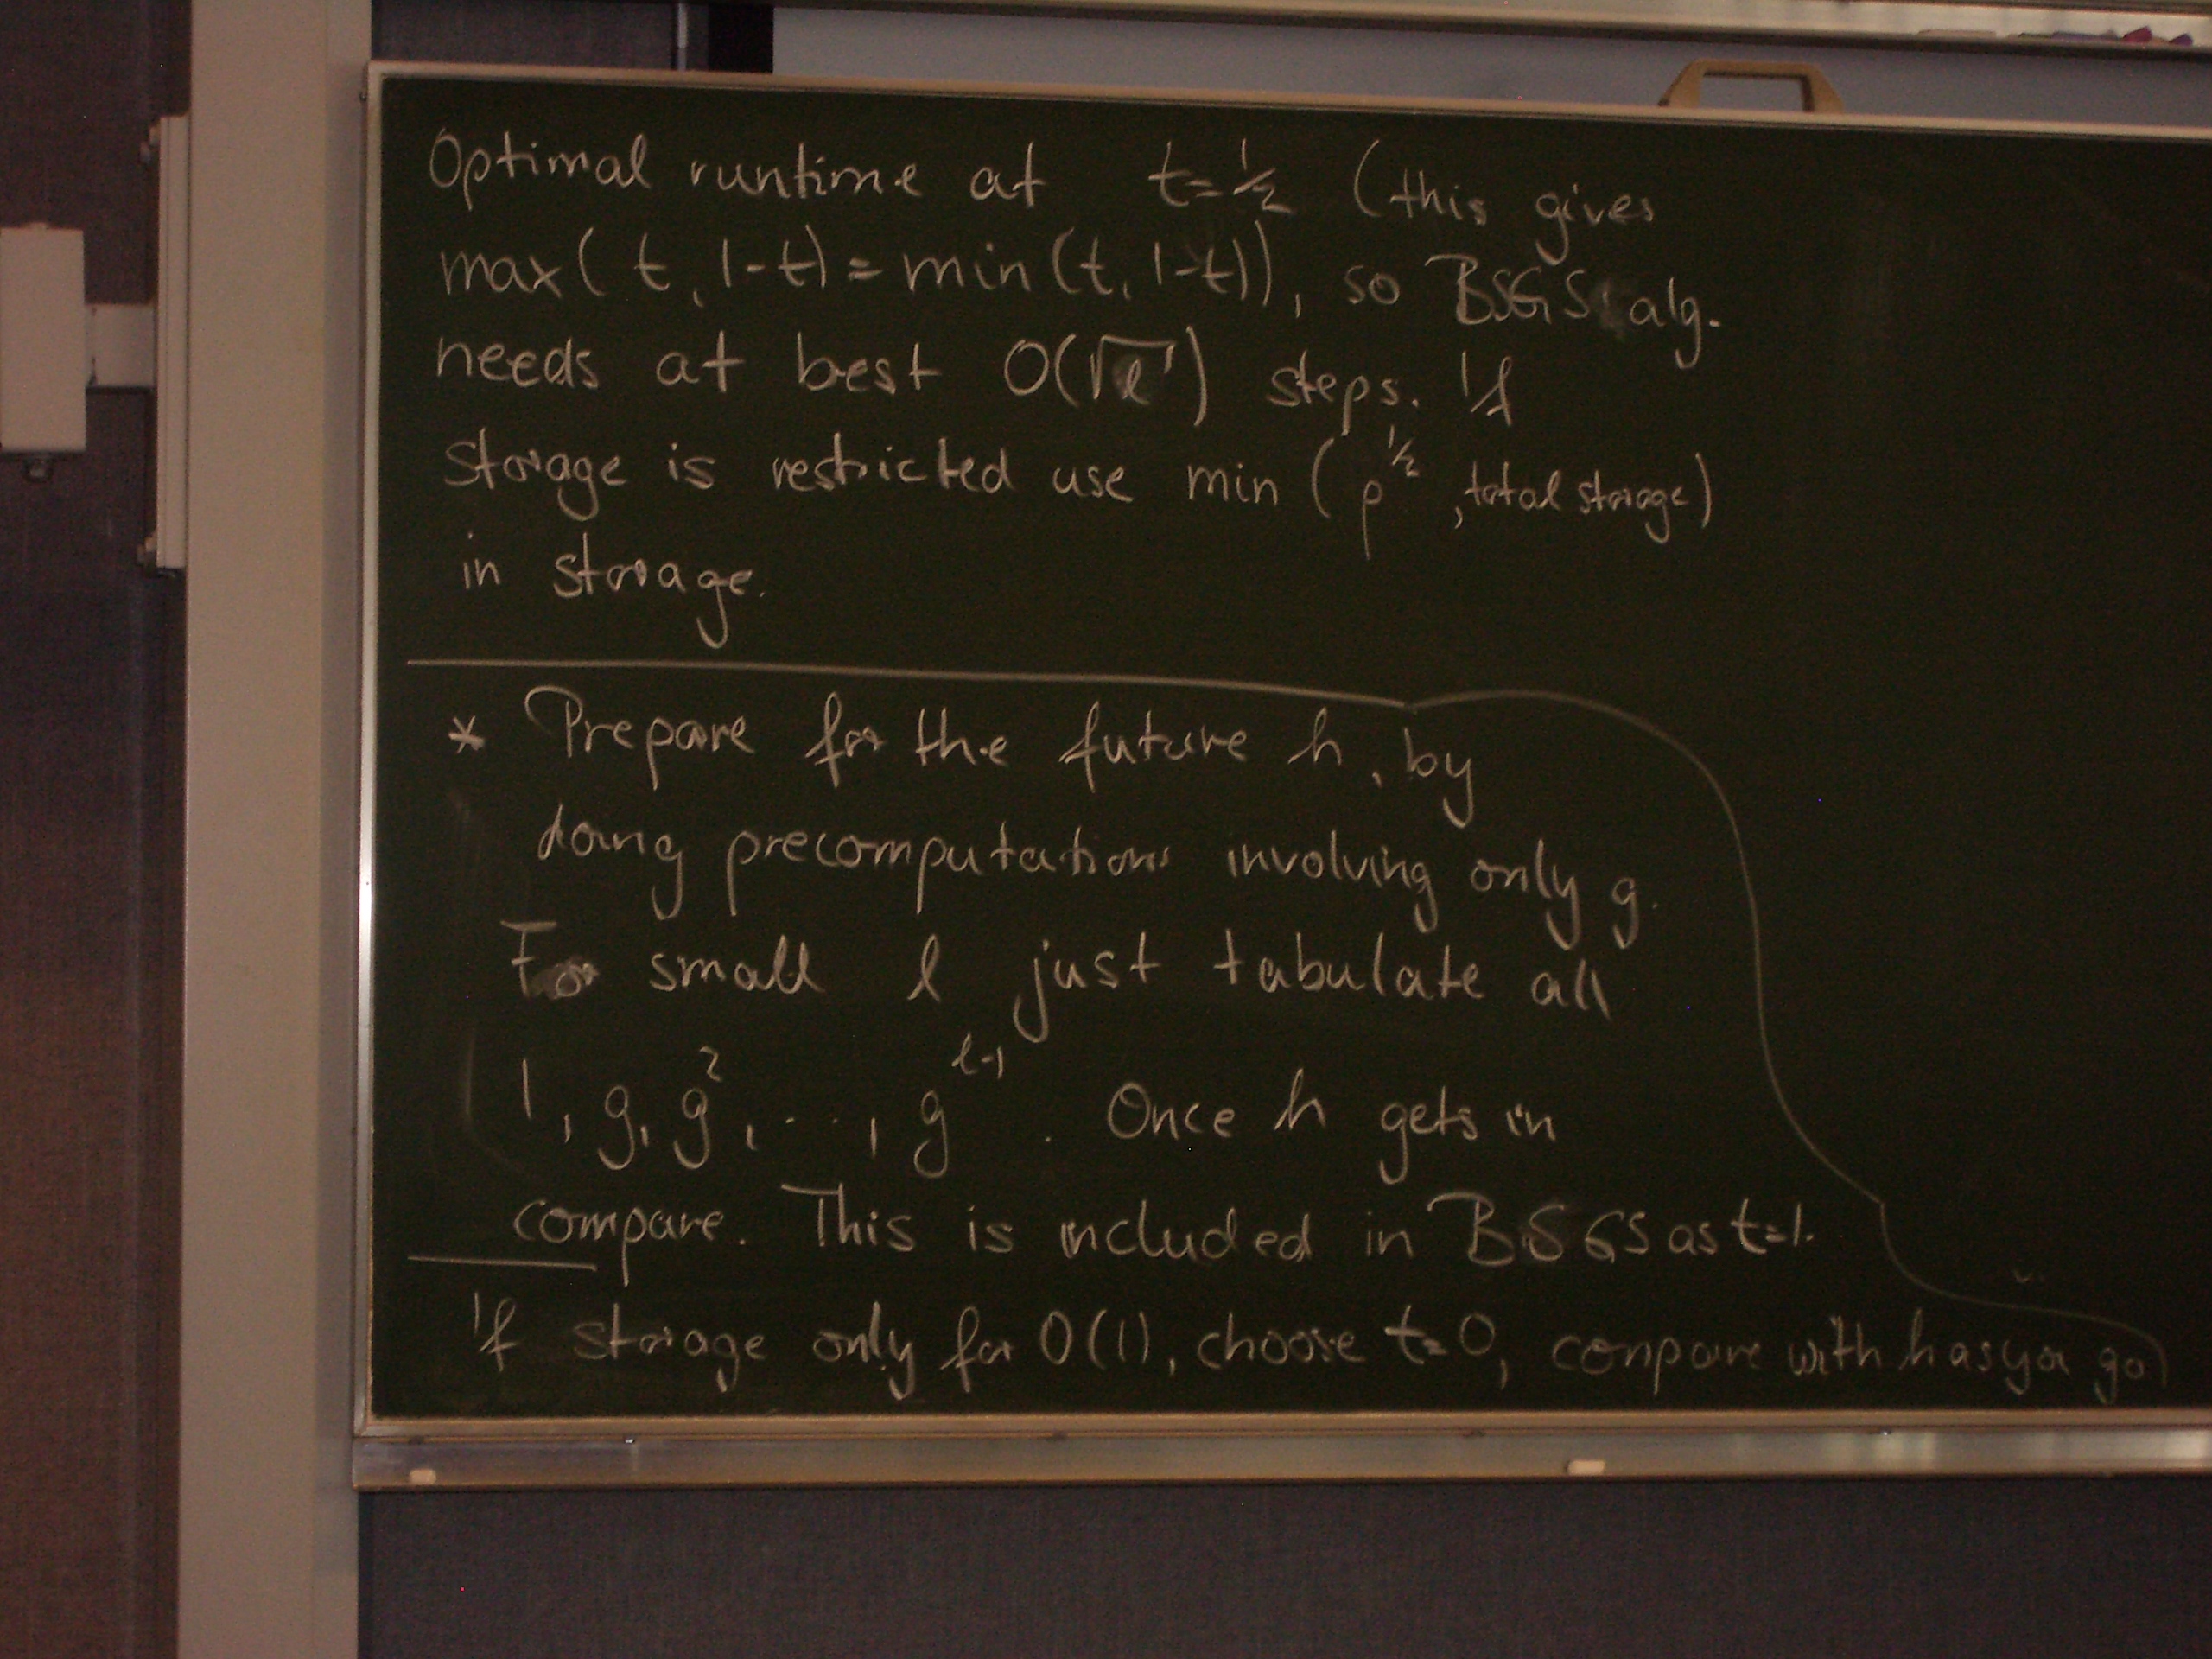 Optimal runtime at t=1/2 (this gives
max(t, 1-t) = min(t, 1-t)), so BSGS alg.
needs at best O(√ℓ) steps. If
storage is restricted use min(ρ^1/2, total storage)
in storage.
* Prepare for the future h, by
doing precomputations involving only g.
For small ℓ just tabulate all
1, g, g², ..., g^ℓ-1. Once h gets in
compare. This is included in BSGS as t=1.
If storage only for O(1), choose t=0, compare with h as you go